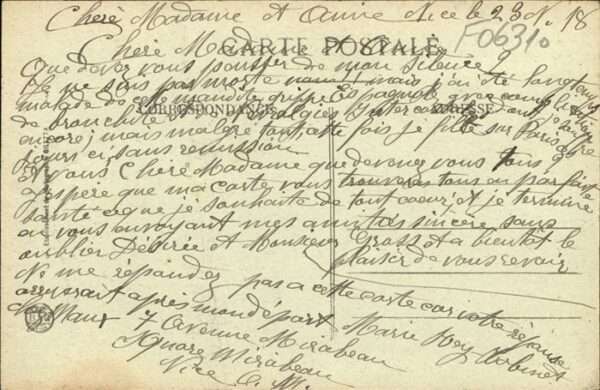 Chère Madame et Amie Nice le 23 N. 18
F06310
CARTE POSTALE
Chère Madame
Que devez vous penser de mon silence ?
Je ne suis pas morte non ! mais j'ai été longtemps
malade de cette maudite grippe Espagnole avec complication
de bronchite
CORRESPONDANCE
ADRESSE
encore) mais malgré tout cette fois je file sur Paris
ici sans rémission
Et vous Chère Madame que devenez vous tous ?
J'espère que ma carte vous trouvera tous en parfaite
santé ce que je souhaite de tout coeur et je termine
en vous envoyant mes amitiés sincère sans
oublier Désirée et Monsieur et a bientôt le
plaisir de vous revoir
Ne me répondez pas a cette carte car votre réponse
après mon départ Marie
7 Avenue Mirabeau
Square Mirabeau
Nice A. M.